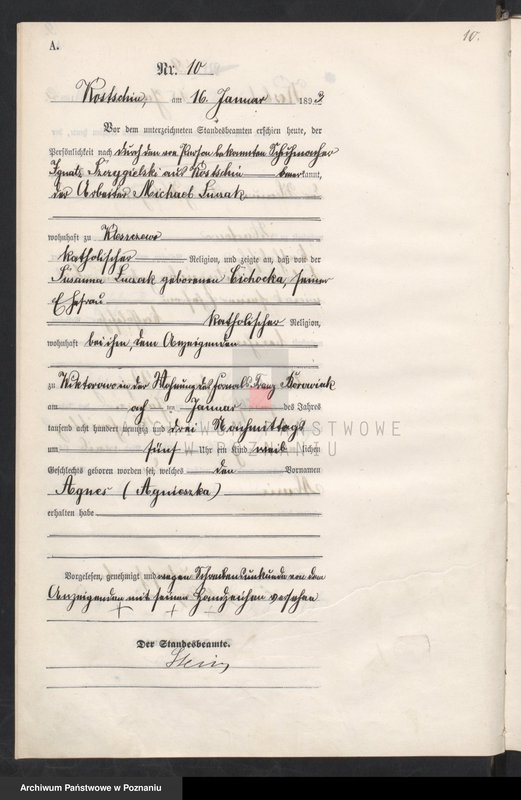 10.
A.
Nr. 10
Kostschin, am 16. Januar 1893
Vor dem unterzeichneten Standesbeamten erschien heute, der
Persönlichkeit nach durch den von Person bekannten Schuhmacher
Ignatz aus Kostschin kannt,
der Arbeiter Michael
wohnhaft zu
katholischer Religion, und zeigte an, daß von der
Susanna geborenen Cichocka, seiner
Ehefrau
katholischer Religion,
wohnhaft bei ihm, dem Anzeigenden
zu Wiktorowo in der Wohnung des Franz
am ten Januar des Jahres
tausend acht hundert neunzig und drei Nachmittags
um fünf Uhr ein Kind weib lichen
Geschlechts geboren worden sei, welches den Vornamen
Agnes (Agnieszka)
erhalten habe
Vorgelesen, genehmigt und wegen Schreibensunkunde von dem
Anzeigenden mit seinen Handzeichen versehen
+ + +
Der Standesbeamte.
ARCHIWUM PAŃSTWOWE
W POZNANIU
Archiwum Państwowe w Poznaniu